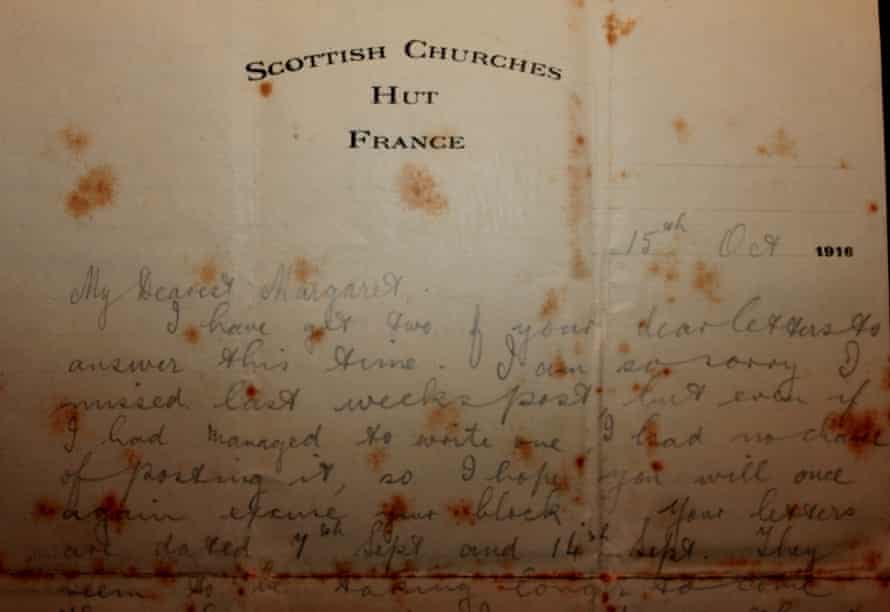 SCOTTISH CHURCHES
HUT
FRANCE
15th Oct 1916
My Dearest Margaret.
I have got two of your dear letters to
answer this time. I am so sorry I
missed last weeks post, but even if
I had managed to write one, I had no chance
of posting it, so I hope you will once
again excuse your block. Your letters
are dated 7th Sept and 14th Sept. They
seem to be taking longer to come